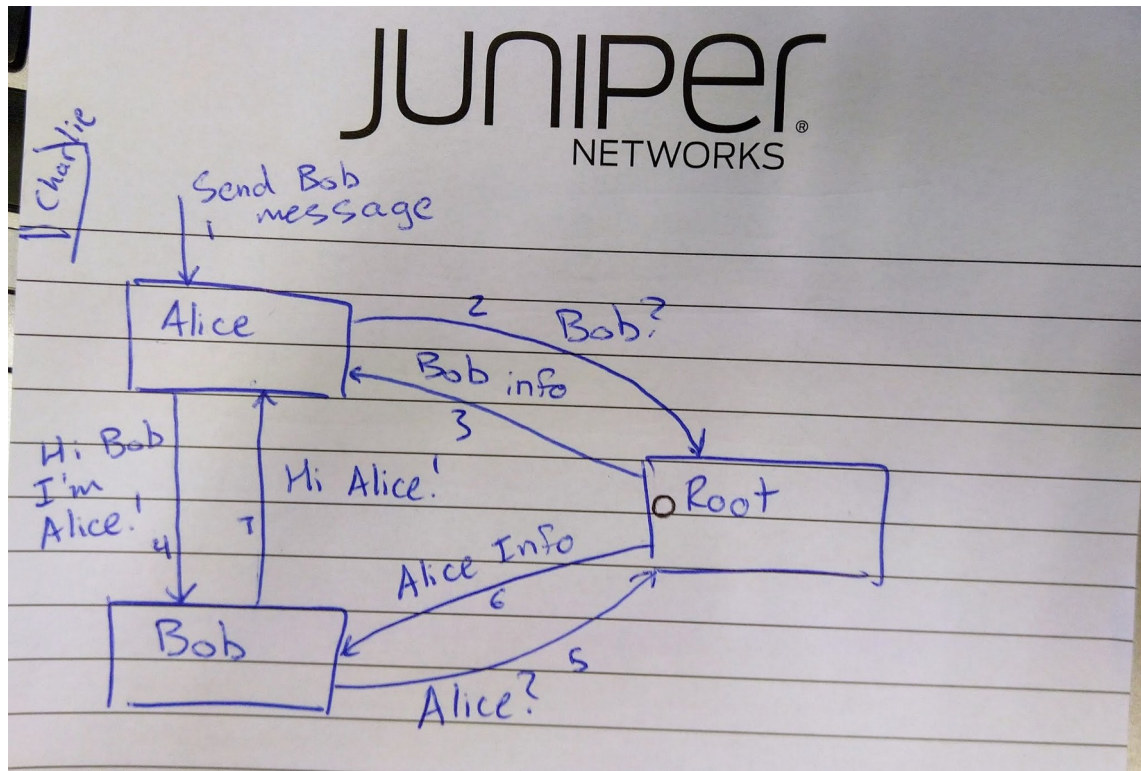 JUNIPER®
NETWORKS
Charlie
Send Bob
message
1
Alice
2
Bob?
Bob info
3
Hi Bob
I'm
Alice!
4
7
Hi Alice!
Root
Alice Info
6
Bob
5
Alice?